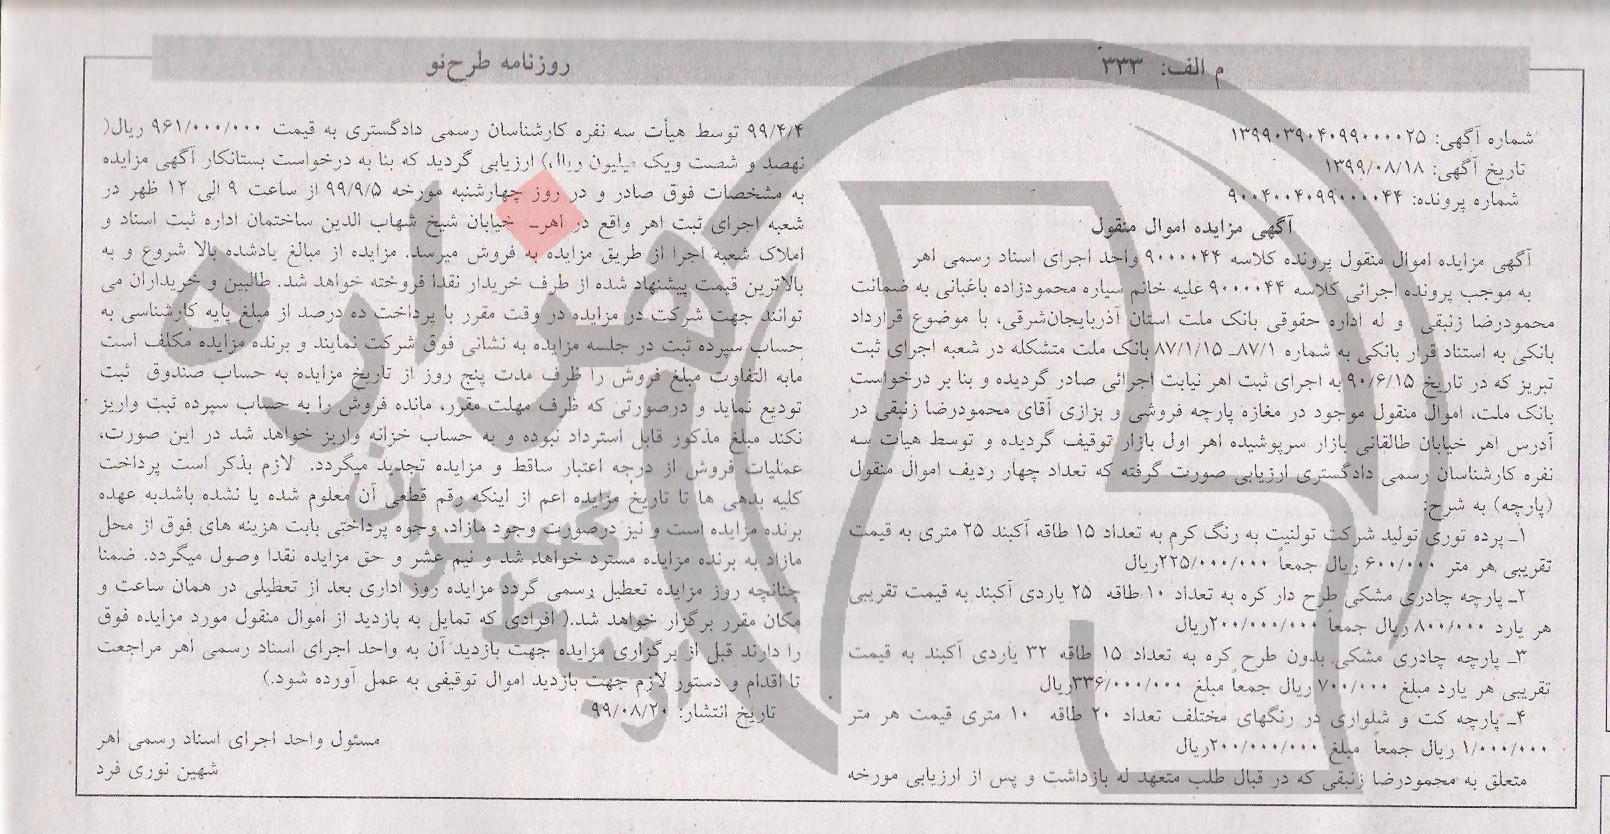 م الف: ۳۳۳
روزنامه طرح‌نو
شماره آگهی: ۱۳۹۹۰۳۹۰۴۰۹۹۰۰۰۰۲۵
تاریخ آگهی: ۱۳۹۹/۰۸/۱۸
شماره پرونده: ۹۰۰۴۰۰۴۰۹۹۰۰۰۰۴۴
آگهی مزایده اموال منقول
آگهی مزایده اموال منقول پرونده کلاسه ۹۰۰۰۰۴۴ واحد اجرای اسناد رسمی اهر
به موجب پرونده اجرائی کلاسه ۹۰۰۰۰۴۴ علیه خانم سیاره محمودزاده باغبانی به ضمانت
محمودرضا زنبقی و له اداره حقوقی بانک ملت استان آذربایجان‌شرقی، با موضوع قرارداد
بانکی به استناد قرار بانکی به شماره ۸۷/۱ـ ۸۷/۱/۱۵ بانک ملت متشکله در شعبه اجرای ثبت
تبریز که در تاریخ ۹۰/۶/۱۵ به اجرای ثبت اهر نیابت اجرائی صادر گردیده و بنا بر درخواست
بانک ملت، اموال منقول موجود در مغازه پارچه فروشی و بزازی آقای محمودرضا زنبقی در
آدرس اهر خیابان طالقانی بازار سرپوشیده اهر اول بازار توقیف گردیده و توسط هیأت سه
نفره کارشناسان رسمی دادگستری ارزیابی صورت گرفته که تعداد چهار ردیف اموال منقول
(پارچه) به شرح:
۱ـ پرده توری تولید شرکت تولنیت به رنگ کرم به تعداد ۱۵ طاقه آکبند ۲۵ متری به قیمت
تقریبی هر متر ۶۰۰/۰۰۰ ریال جمعاً ۲۲۵/۰۰۰/۰۰۰ریال
۲ـ پارچه چادری مشکی طرح دار کره به تعداد ۱۰ طاقه ۲۵ یاردی آکبند به قیمت تقریبی
هر یارد ۸۰۰/۰۰۰ ریال جمعا ۲۰۰/۰۰۰/۰۰۰ریال
۳ـ پارچه چادری مشکی بدون طرح کره به تعداد ۱۵ طاقه ۳۲ یاردی آکبند به قیمت
تقریبی هر یارد مبلغ ۷۰۰/۰۰۰ ریال جمعا مبلغ ۳۳۶/۰۰۰/۰۰۰ریال
۴ـ پارچه کت و شلواری در رنگهای مختلف تعداد ۲۰ طاقه ۱۰ متری قیمت هر متر
۱/۰۰۰/۰۰۰ ریال جمعاً مبلغ ۲۰۰/۰۰۰/۰۰۰ریال
متعلق به محمودرضا زنبقی که در قبال طلب متعهد له بازداشت و پس از ارزیابی مورخه
۹۹/۴/۴ توسط هیأت سه نفره کارشناسان رسمی دادگستری به قیمت ۹۶۱/۰۰۰/۰۰۰ ریال(
نهصد و شصت ویک میلیون ریال) ارزیابی گردید که بنا به درخواست بستانکار آگهی مزایده
به مشخصات فوق صادر و در روز چهارشنبه مورخه ۹۹/۹/۵ از ساعت ۹ الی ۱۲ ظهر در
شعبه اجرای ثبت اهر واقع در اهرـ خیابان شیخ شهاب الدین ساختمان اداره ثبت اسناد و
املاک شعبه اجرا از طریق مزایده به فروش میرسد. مزایده از مبالغ یادشده بالا شروع و به
بالاترین قیمت پیشنهاد شده از طرف خریدار نقدا فروخته خواهد شد. طالبین و خریداران می
توانند جهت شرکت در مزایده در وقت مقرر با پرداخت ده درصد از مبلغ پایه کارشناسی به
حساب سپرده ثبت در جلسه مزایده به نشانی فوق شرکت نمایند و برنده مزایده مکلف است
مابه التفاوت مبلغ فروش را ظرف مدت پنج روز از تاریخ مزایده به حساب صندوق ثبت
تودیع نماید و درصورتی که ظرف مهلت مقرر، مانده فروش را به حساب سپرده ثبت واریز
نکند مبلغ مذکور قابل استرداد نبوده و به حساب خزانه واریز خواهد شد در این صورت،
عملیات فروش از درجه اعتبار ساقط و مزایده تجدید میگردد. لازم بذکر است پرداخت
کلیه بدهی ها تا تاریخ مزایده اعم از اینکه رقم قطعی آن معلوم شده یا نشده باشدبه عهده
برنده مزایده است و نیز درصورت وجود مازاد، وجوه پرداختی بابت هزینه های فوق از محل
مازاد به برنده مزایده مسترد خواهد شد و نیم عشر و حق مزایده نقدا وصول میگردد. ضمنا
چنانچه روز مزایده تعطیل رسمی گردد مزایده روز اداری بعد از تعطیلی در همان ساعت و
مکان مقرر برگزار خواهد شد.( افرادی که تمایل به بازدید از اموال منقول مورد مزایده فوق
را دارند قبل از برگزاری مزایده جهت بازدید آن به واحد اجرای اسناد رسمی اهر مراجعت
تا اقدام و دستور لازم جهت بازدید اموال توقیفی به عمل آورده شود.)
تاریخ انتشار: ۹۹/۰۸/۲۰
مسئول واحد اجرای اسناد رسمی اهر
شهین نوری فرد